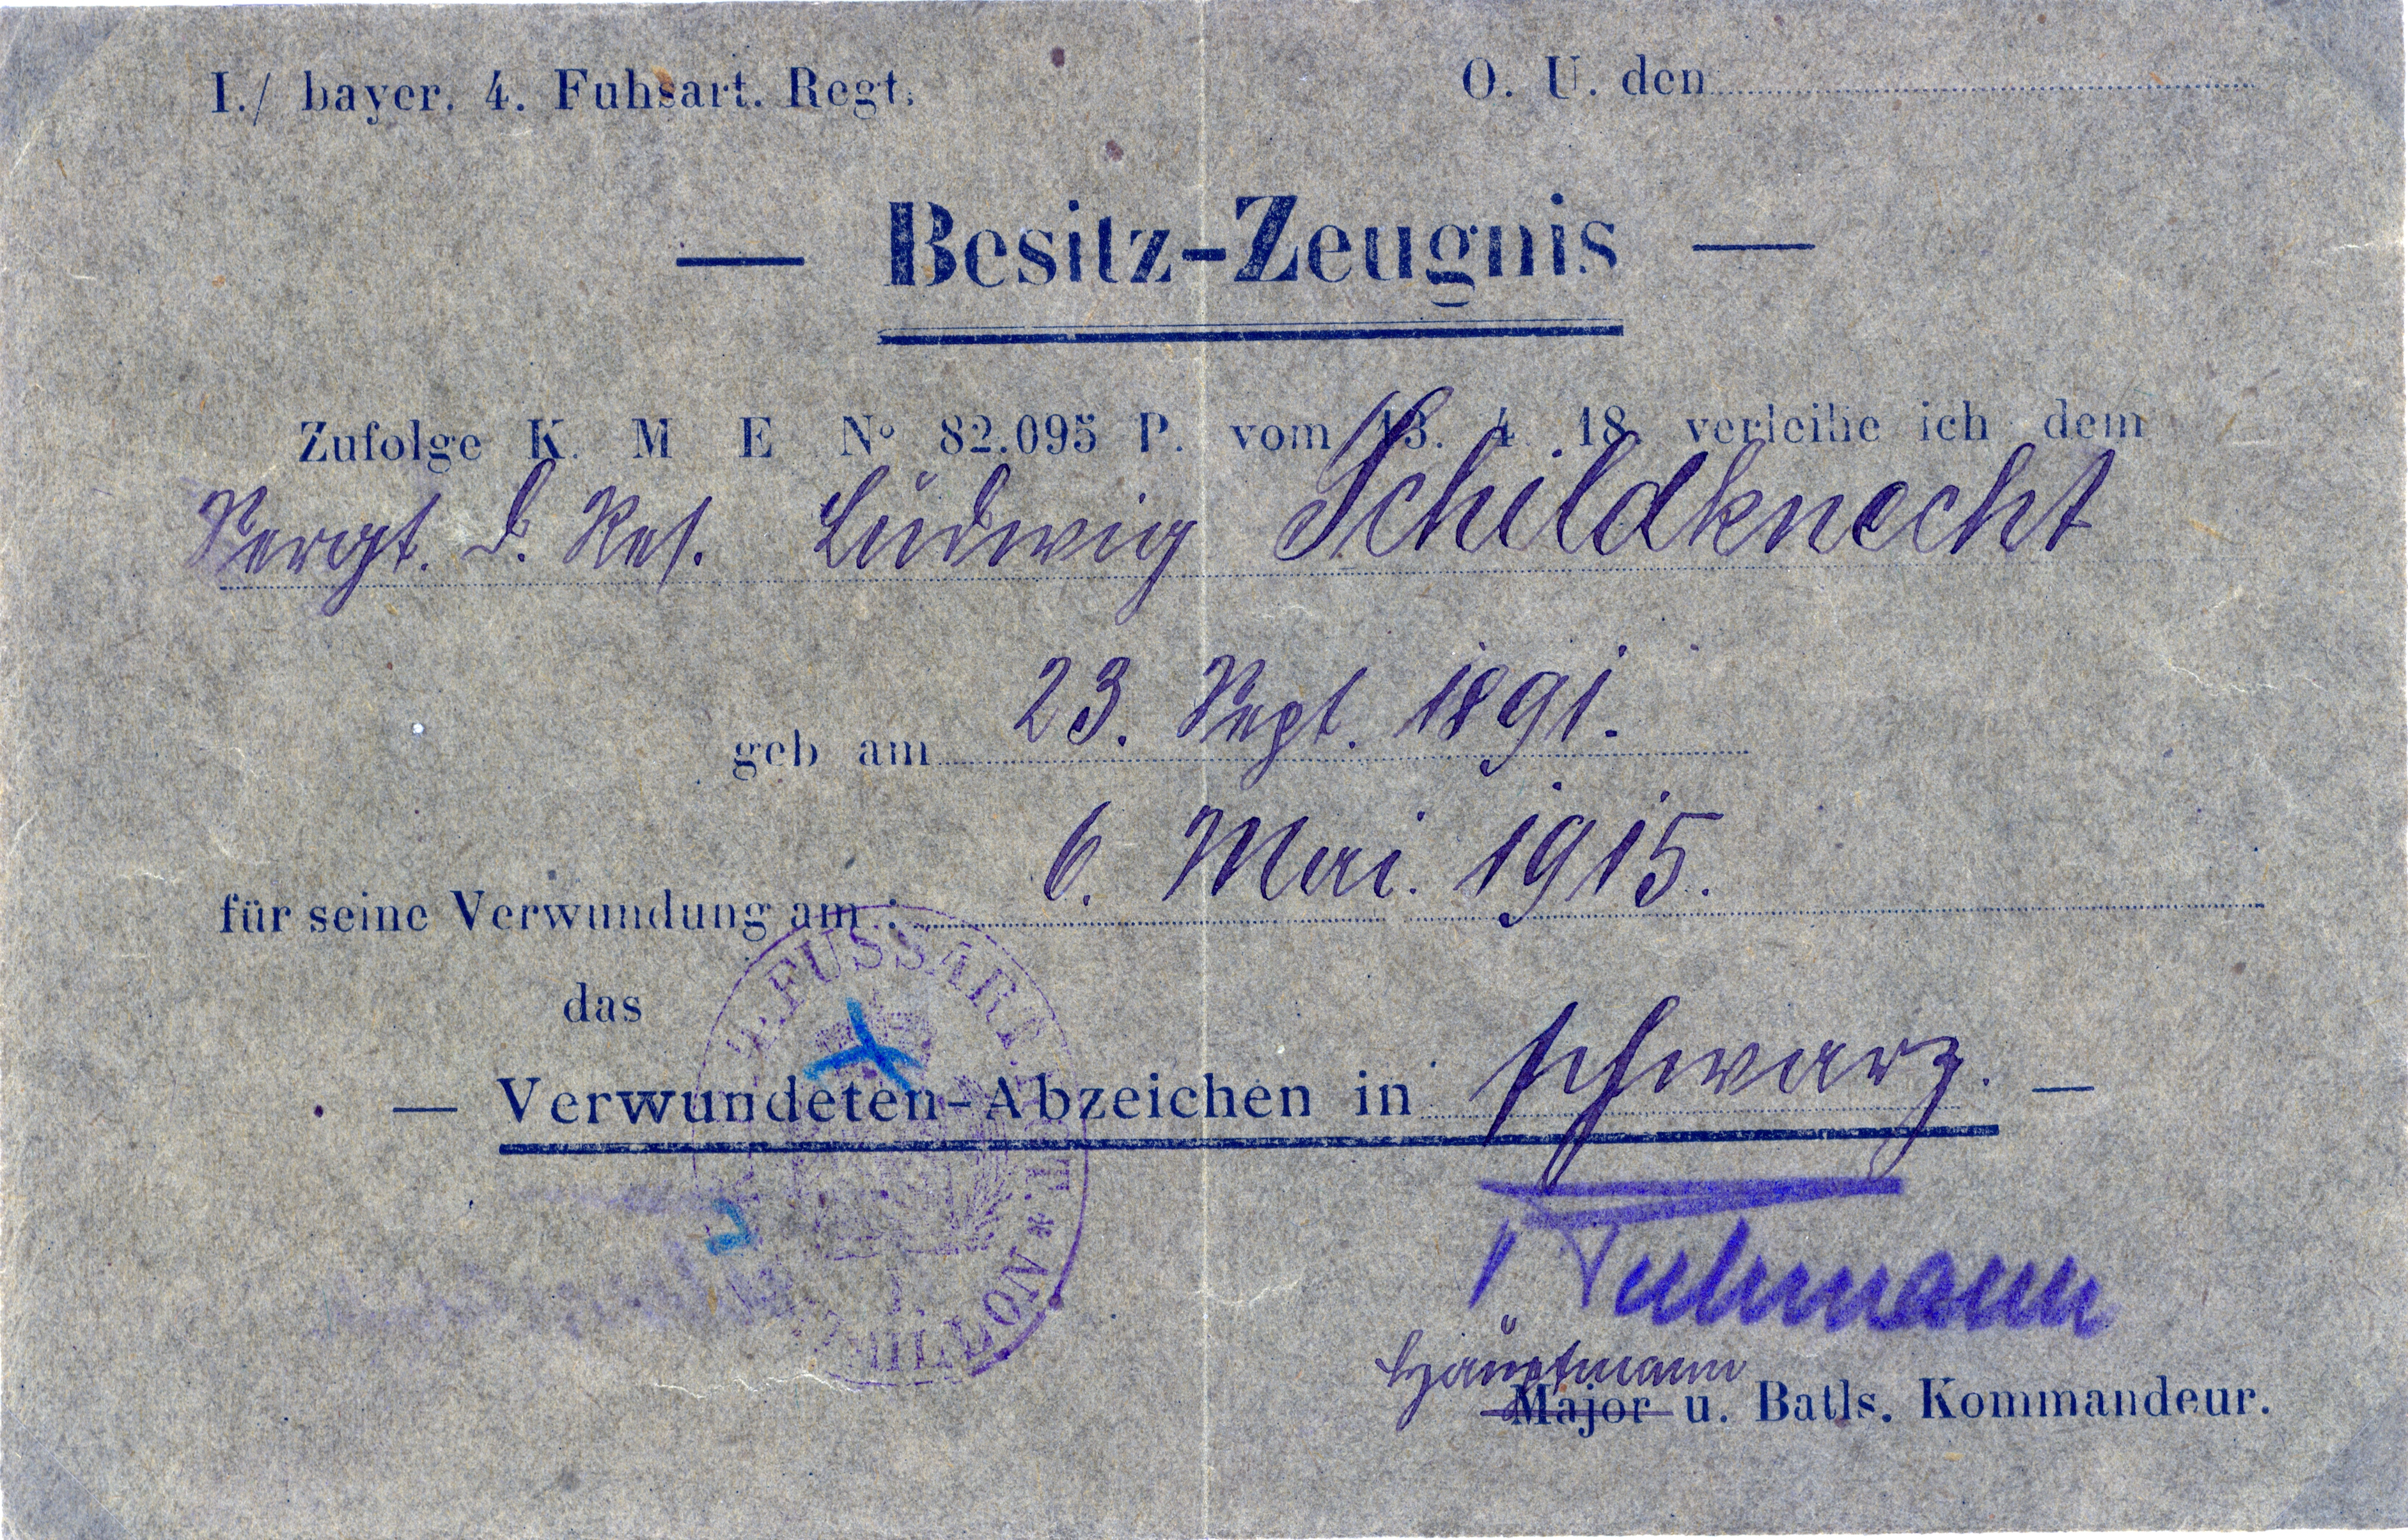 I./ bayer. 4. Fuhsart. Regt.
O. U. den
— Besitz-Zeugnis —
Zufolge K. M E No 82.095 P. vom 13. 4. 18. verleihe ich dem
Sergt. d. Res. Ludwig Schildknecht
geb am 23. Sept. 1891.
für seine Verwundung am : 6. Mai. 1915.
das
— Verwundeten-Abzeichen in schwarz. —
FUSSART
Hauptmann
Major u. Batls. Kommandeur.